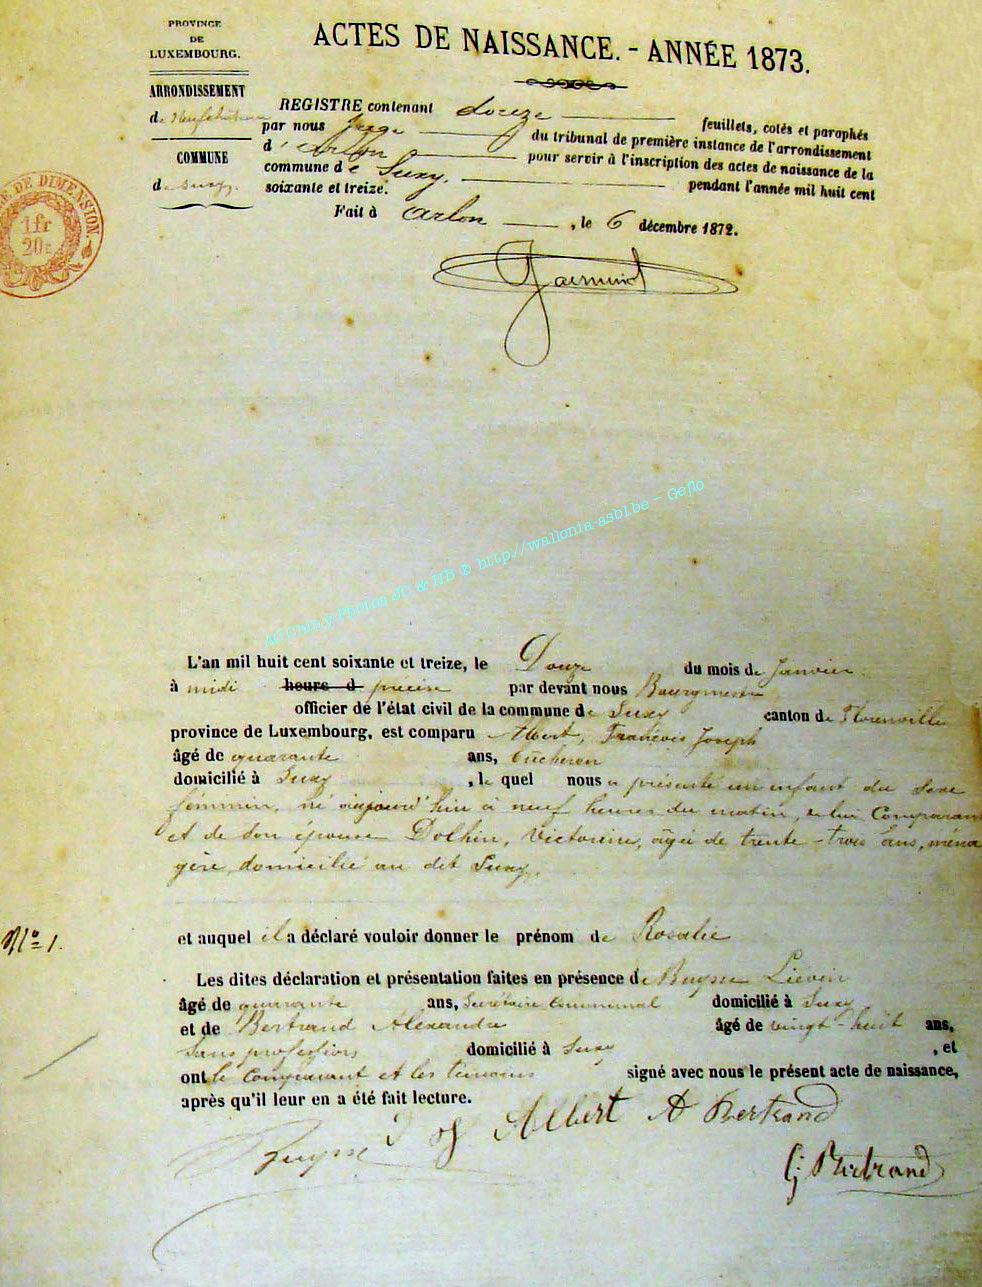 PROVINCE
DE
LUXEMBOURG.
ARRONDISSEMENT
de Neufchâteau
COMMUNE
de Suxy.
DE DIMENSION.
1 fr
20 c
ACTES DE NAISSANCE. - ANNÉE 1873.
REGISTRE contenant douze feuillets, cotés et paraphés
par nous Juge du tribunal de première instance de l'arrondissement
d' Arlon pour servir à l'inscription des actes de naissance de la
commune de Suxy. pendant l'année mil huit cent
soixante et treize.
Fait à Arlon, le 6 décembre 1872.
JC & HB © http//wallonia-asbl.be - Geflo
L'an mil huit cent soixante et treize, le Douze du mois de Janvier
à midi heures d précise par devant nous Bourgmestre
officier de l'état civil de la commune de Suxy canton de Florenville
province de Luxembourg, est comparu Albert, François Joseph
âgé de quarante ans, bûcheron
domicilié à Suxy, le quel nous a présenté un enfant du sexe
féminin, né aujourd'hui à neuf heures du matin, de lui Comparant
et de son épouse Dolhin, Victorine, âgée de trente-trois ans, ména
gère, domicilié au dit Suxy.
N° 1.
et auquel il a déclaré vouloir donner le prénom de Rosalie
Les dites déclaration et présentation faites en présence de Buysse Lievin
âgé de quarante ans, Secrétaire Communal domicilié à Suxy
et de Bertrand Alexandre âgé de vingt-huit ans,
Sans profession domicilié à Suxy, et
ont le comparant et les témoins signé avec nous le présent acte de naissance,
après qu'il leur en a été fait lecture.
J f Albert A Bertrand
Buysse
G Bertrand